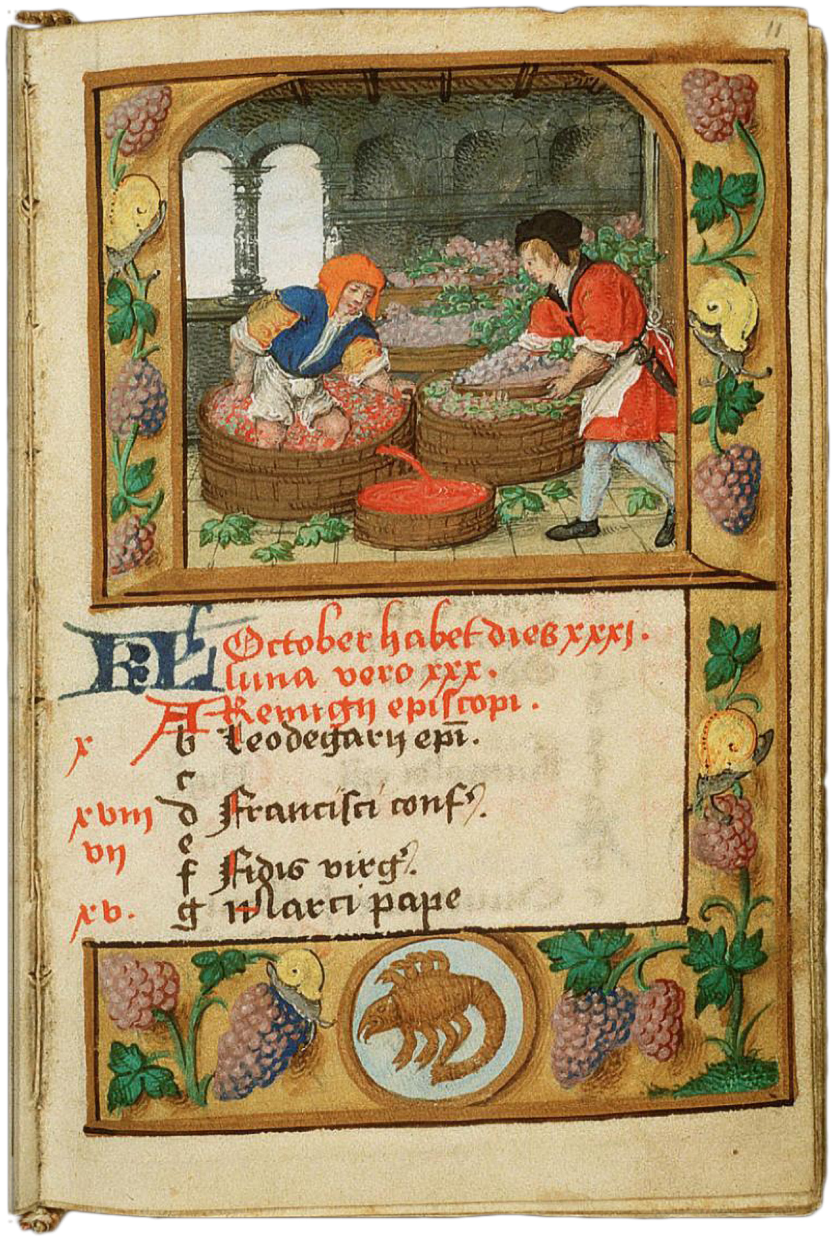 11
KL October habet dies xxxi.
luna vero xxx.
A Remigij episcopi.
x b Leodegarij epi̅.
c
xviii d Francisci conf.
vii e
f Fidis virg.
xv. g Marci pape